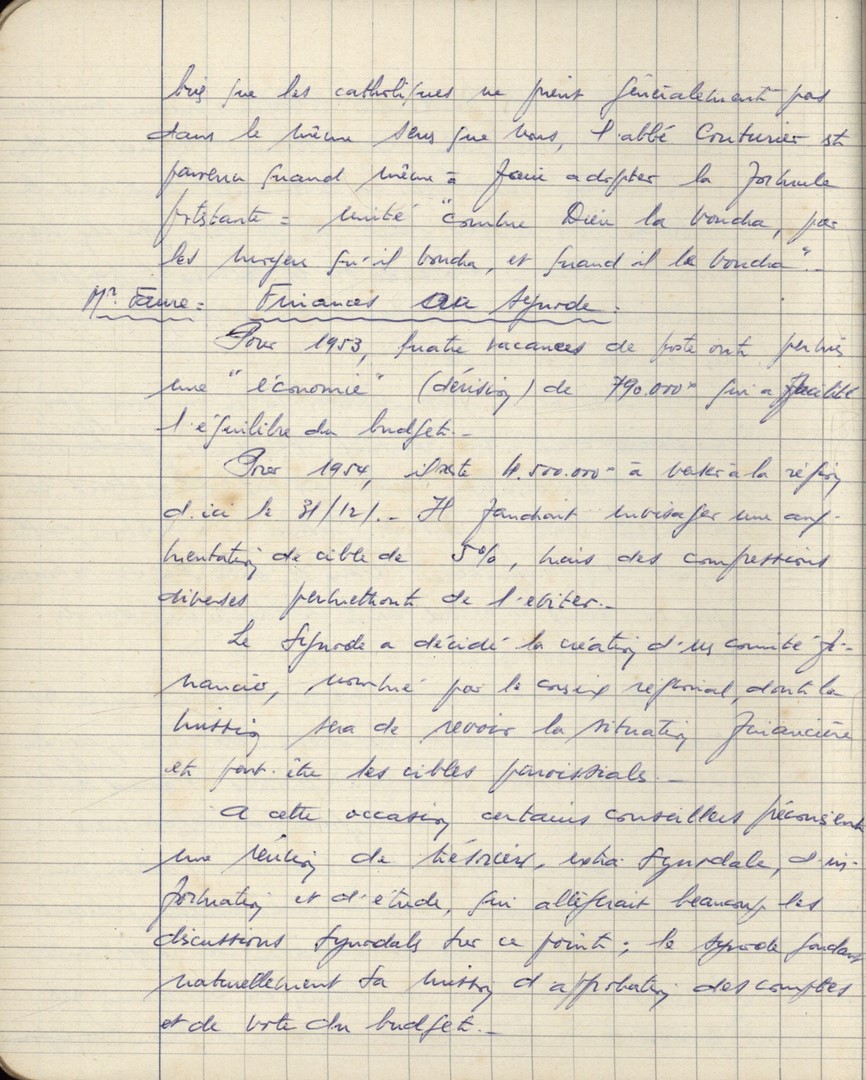 bien que les catholiques ne prient généralement pas
dans le même sens que nous, l'abbé Couturier est
parvenu quand même à faire adopter la formule
protestante = unité "comme Dieu la voudra, par
les moyens qu'il voudra, et quand il le voudra".-
Mr. Faure = Finances au Synode :
Pour 1953, quatre vacances de poste ont permis
une "économie" (dérision) de 790.000 qui a facilité
l'équilibre du budget.-
Pour 1954, il reste 4.500.000 à verser à la région
d'ici le 31/12/.- Il faudrait envisager une aug-
mentation de cible de 5%, mais des compressions
diverses permettront de l'éviter.-
Le Synode a décidé la création d'un comité fi-
nancier, nommé par le conseil régional, dont la
mission sera de revoir la situation financière
et peut-être les cibles paroissiales.-
A cette occasion certains conseillers préconisent
une réunion de trésoriers, extra-synodale, d'in-
formation et d'étude, qui allègerait beaucoup les
discussions synodales sur ce point ; le synode gardant
naturellement sa mission d'approbation des comptes
et de vote du budget.-